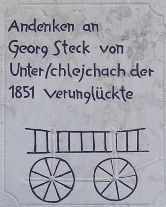 Andenken an
Georg Steck von
Unterſchleichach der
1851 verunglückte